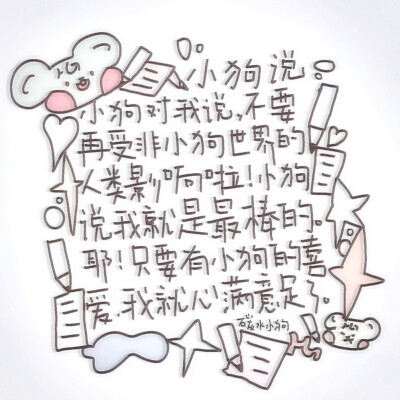 小狗说
小狗对我说,不要
再受非小狗世界的
人类影响啦!小狗
说我就是最棒的.
耶!只要有小狗的喜
爱.我就心满意足了.
碳水小狗